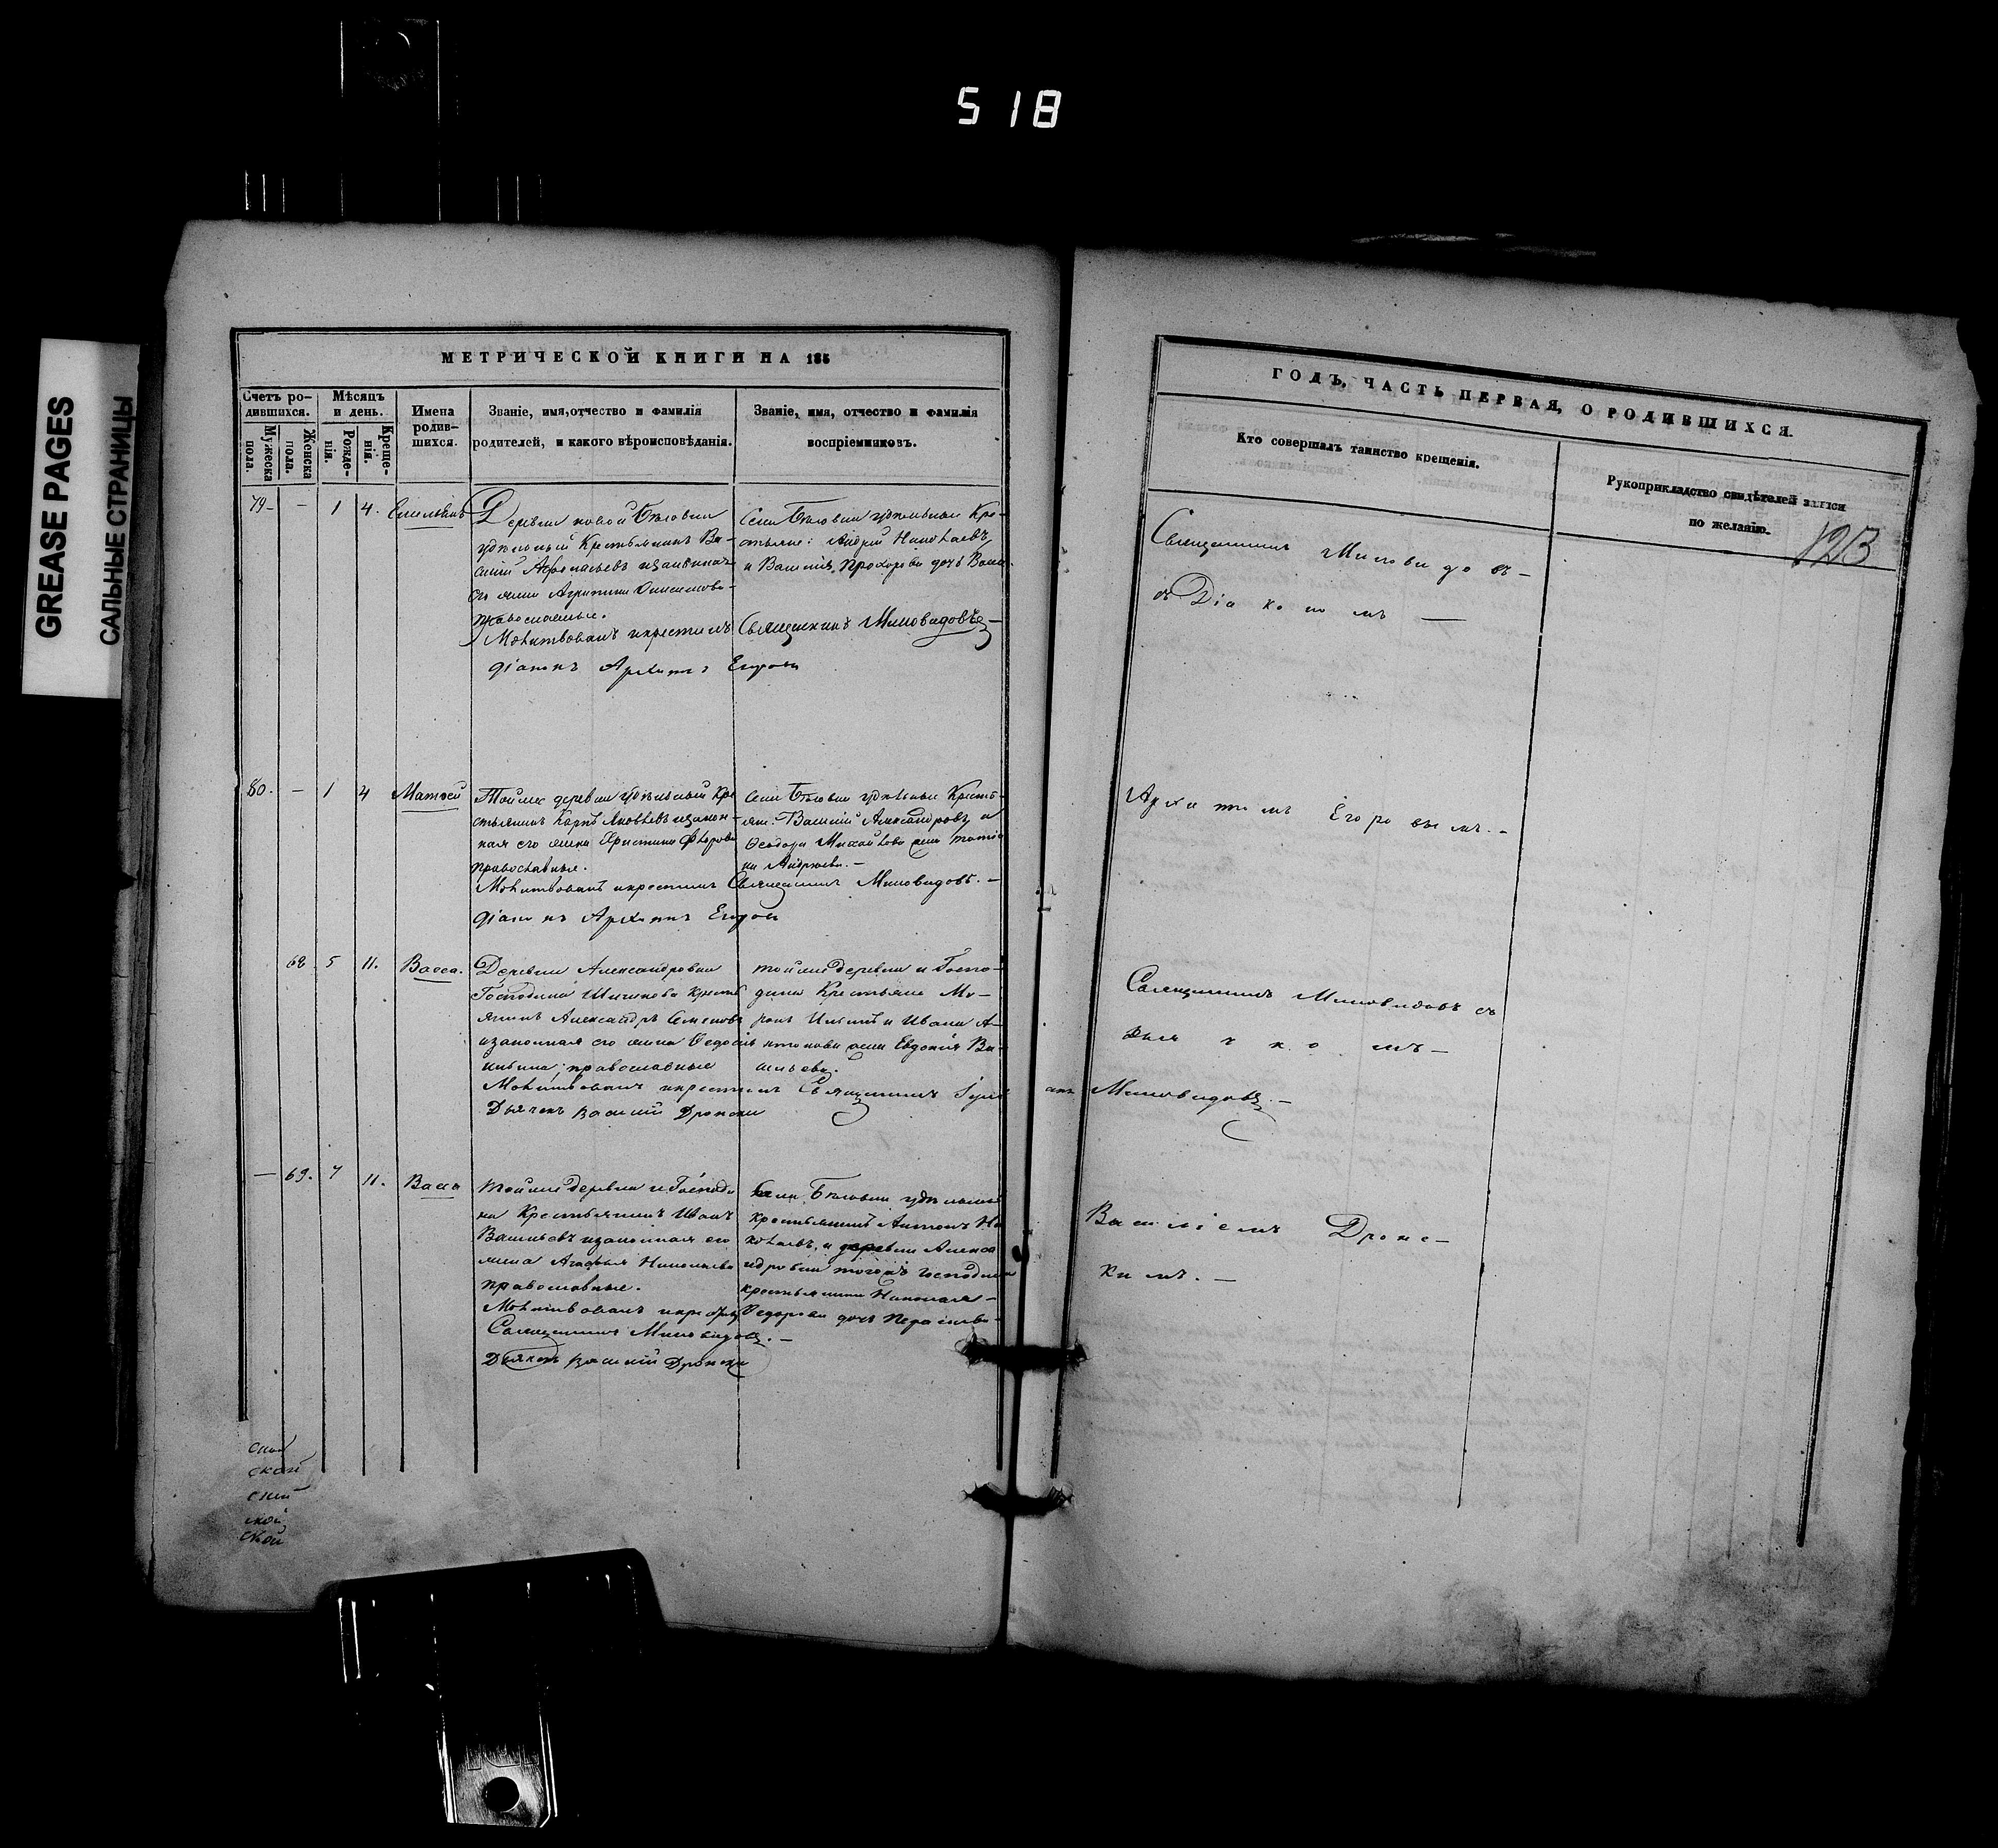 518
GREASE PAGES
САЛЬНЫЕ СТРАНИЦЫ
МЕТРИЧЕСКОЙ КНИГИ НА 185
Счетъ ро-
дившихся.
Мужеска
пола.
Женска
пола.
Мѣсяцъ
и день.
Рожде-
нія.
Креще-
нія.
Имена
родив-
шихся.
Званіе, имя, отчество и фамилія
родителей, и какого вѣроисповѣданія.
Званіе, имя, отчество и фамилія
воспріемниковъ.
79 - 1 4. Емельянъ
Деревни новой Бѣловки
удѣльный Крестьянинъ Ва-
силій Афонасьевъ и законная
его жена Агрипина
православные.
Молитвовалъ и крестилъ Священникъ Миловидовъ
діаконъ Архипъ Егоровъ
Села Бѣловки удѣльные Кре-
стьяне: Андрей Николаевъ
и Василія Прохорова дочь
80. - 1 4 Матѳей
Той же деревни удѣльный Кре
стьянинъ Карпъ Яковлевъ и закон-
ная его жена Христина
православные.
Молитвовалъ и крестилъ Священникъ Миловидовъ. -
діаконъ Архипъ Егоровъ
Села Бѣловки удѣльные Кресть-
яне: Василій Александровъ и
Ѳеодора Михайлова жена
Андреева. -
68 5 11. Васса.
Деревни Александровки
Господина Шишкова кресть
янинъ Александръ Семеновъ
и законная его жена Ѳедосья
православные
Молитвовалъ и крестилъ Священникъ Миловидовъ. -
Дьячекъ Василій Дронски
той же деревни и Госпо-
дина Крестьяне Ми-
ронъ и Ивана А-
нтонова жена Евдокія Ва-
сильева.
— 69. 7 11. Васса
той же деревни и Господи
на Крестьянинъ Иванъ
Васильевъ и законная его
жена Агафья Николаева
православные.
Молитвовалъ и крестилъ
Священникъ Миловидовъ. -
Дьячекъ Василій Дронски
Села Бѣловки удѣльный
крестьянинъ Антонъ Ни
колаевъ, и деревни Алекса
ндровки того жъ господина
крестьянина Николая
Ѳедорова дочь
ской
ской
ской
ской
ской
ГОДЪ, ЧАСТЬ ПЕРВАЯ, О РОДИВШИХСЯ.
Кто совершалъ таинство крещенія.
Рукоприкладство свидѣтелей записи
по желанію.
123
Священникъ Миловидовъ -
съ Діакономъ —
Архипомъ Егоровымъ. -
Священникъ Миловидовъ съ
Дьячкомъ -
Василіемъ Дронс-
кимъ. -